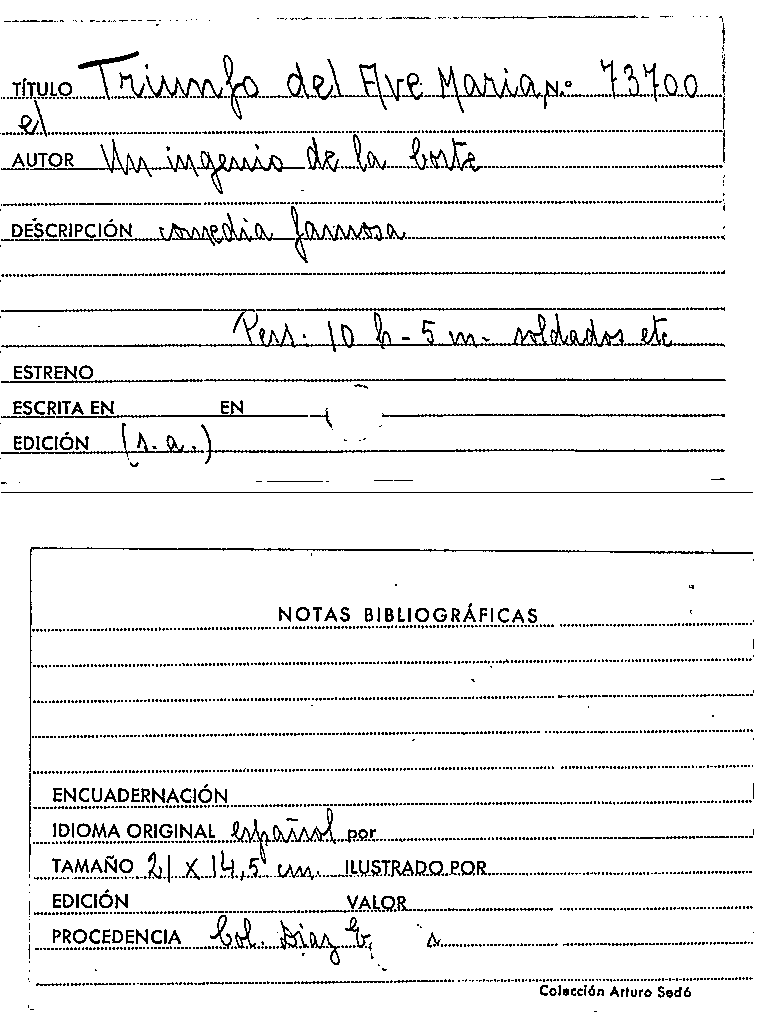 TÍTULO Triunfo del Ave Maria N.º 73700
el
AUTOR Un ingenio de la Corte
DESCRIPCIÓN comedia famosa
Pers. 10 h - 5 m - soldados etc
ESTRENO
ESCRITA EN EN
EDICIÓN (s. a.)
NOTAS BIBLIOGRÁFICAS
ENCUADERNACIÓN
IDIOMA ORIGINAL español por
TAMAÑO 21 x 14,5 cm. ILUSTRADO POR
EDICIÓN VALOR
PROCEDENCIA Col. Díaz
Colección Arturo Sedó